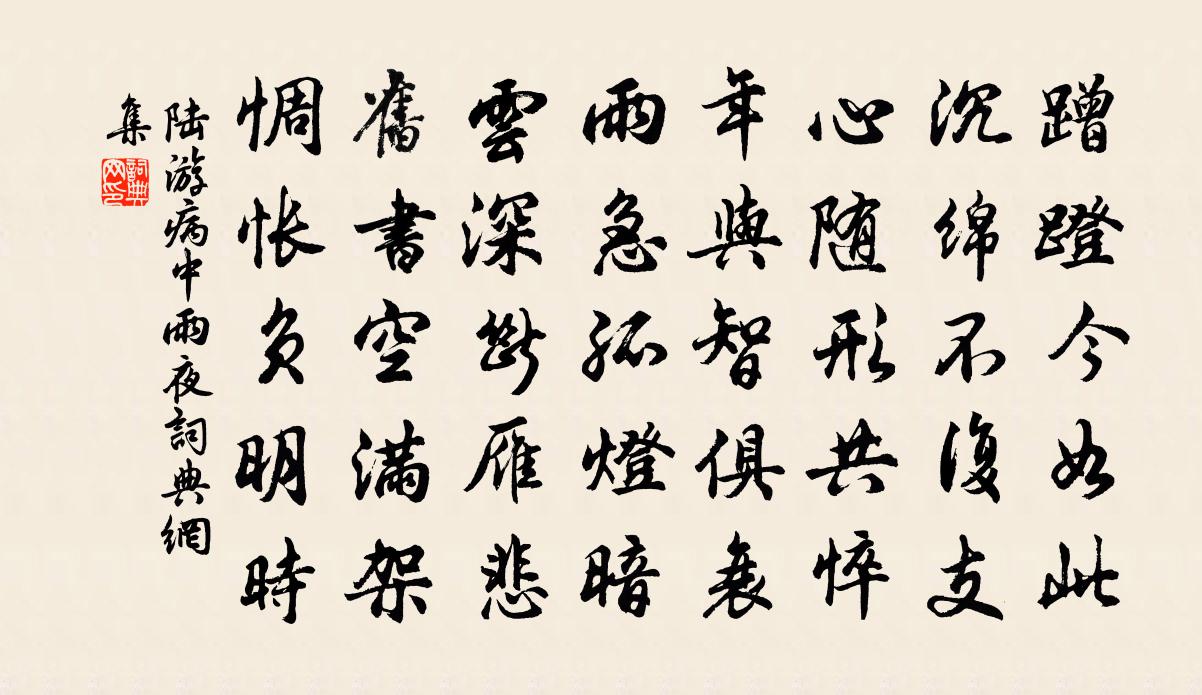 蹭蹬今如此
沉绵不復支
心随形共悴
年與智俱衰
雨急孤燈暗
雲深斷雁悲
舊書空滿架
惆怅負明時
陆游病中雨夜詞典網
集
詞典
网印